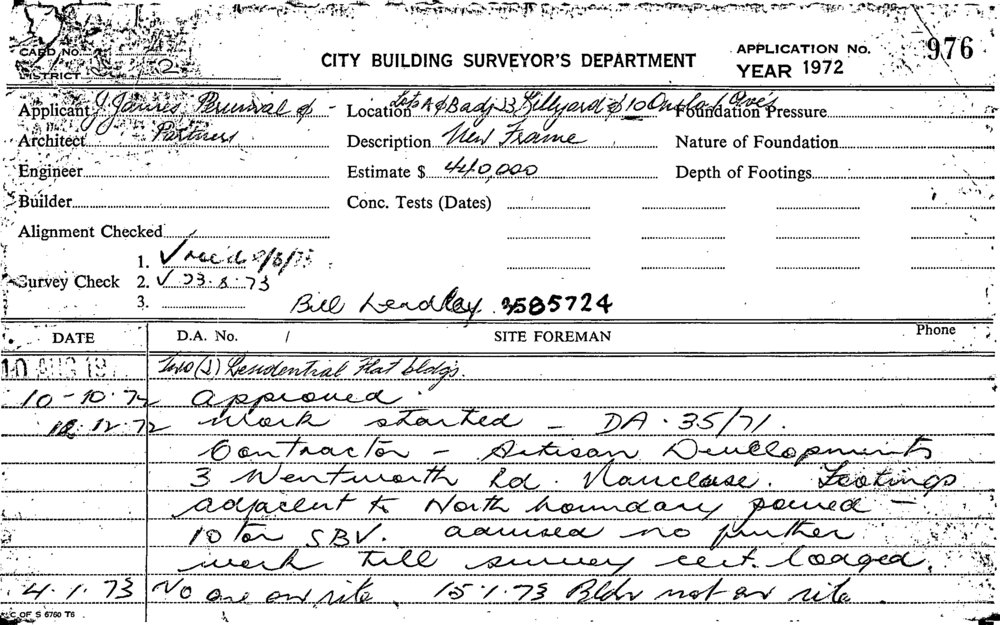 CARD No.
DISTRICT 2
CITY BUILDING SURVEYOR'S DEPARTMENT
APPLICATION No. 976
YEAR 1972
Applicant J. James Percival & - Location Lots A & B adj 23 Billyard & 10 Onslow Ave's Foundation Pressure
Architect Partners Description New Frame Nature of Foundation
Engineer Estimate $ 440,000 Depth of Footings
Builder Conc. Tests (Dates)
Alignment Checked
1. ✓ rec'd /8/73
Survey Check 2. ✓ 23.8.73
3.
Bill Leadley 3585724
DATE D.A. No. / SITE FOREMAN Phone
10 AUG 19 Two (2) Residential Flat bldgs.
10-10-72 Approved.
12.12.72 Work started - DA.35/71.
Contractor - Artisan Developments
3 Wentworth Rd. Vaucluse. Footings
adjacent to North boundary poured -
10 ton SBV. advised no further
work till survey cert. lodged.
4.1.73 No one on site. 15.1.73 Bldr not on site.
C OF S 6760 T6